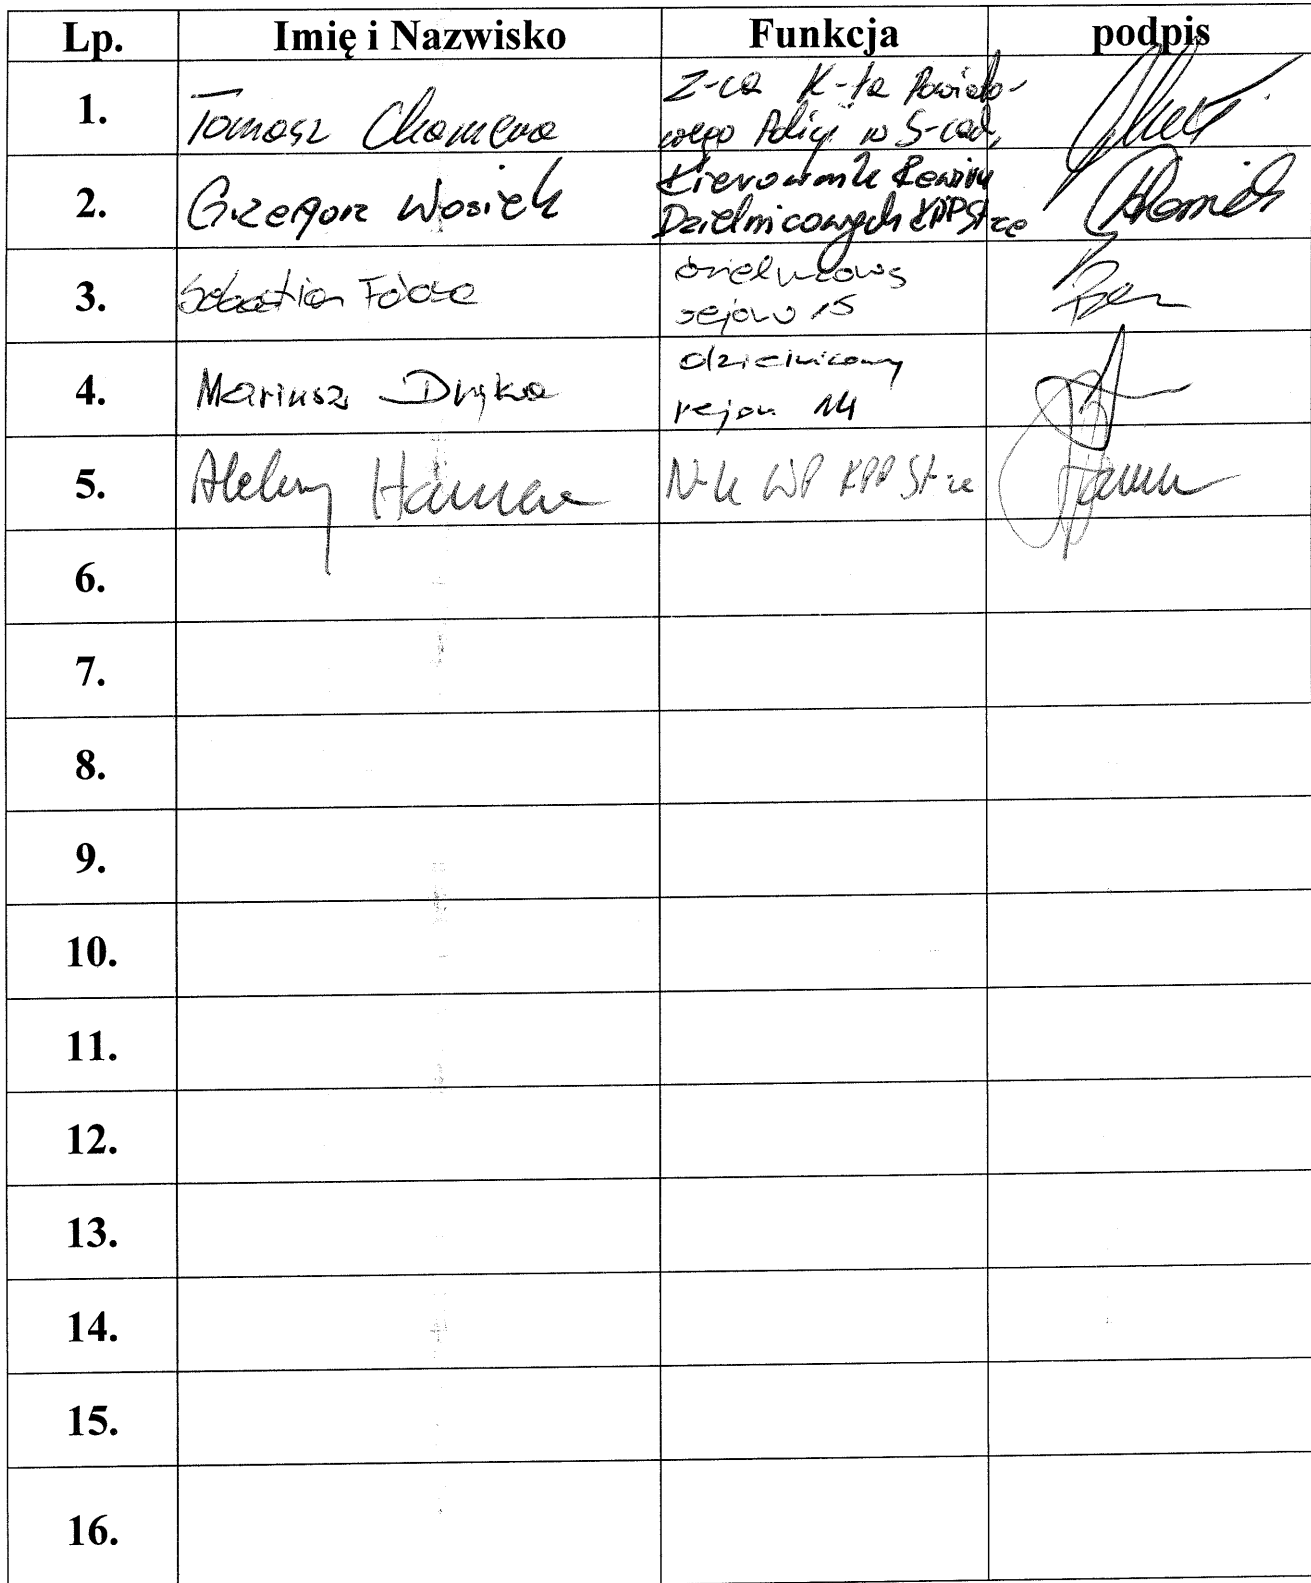 Lp. Imię i Nazwisko Funkcja podpis
1. Tomasz Z-ca K-ta Powiato-
wego Policji w S-cach
2. Grzegorz Wosiek Kierownik Rewiru
Dzielnicowych KPP Strze
3. Sebastian dzielnicowy
rejonu 15
4. Mariusz Dryka dzielnicowy
rejon 14
5. N-k WP KPP Strze
6.
7.
8.
9.
10.
11.
12.
13.
14.
15.
16.